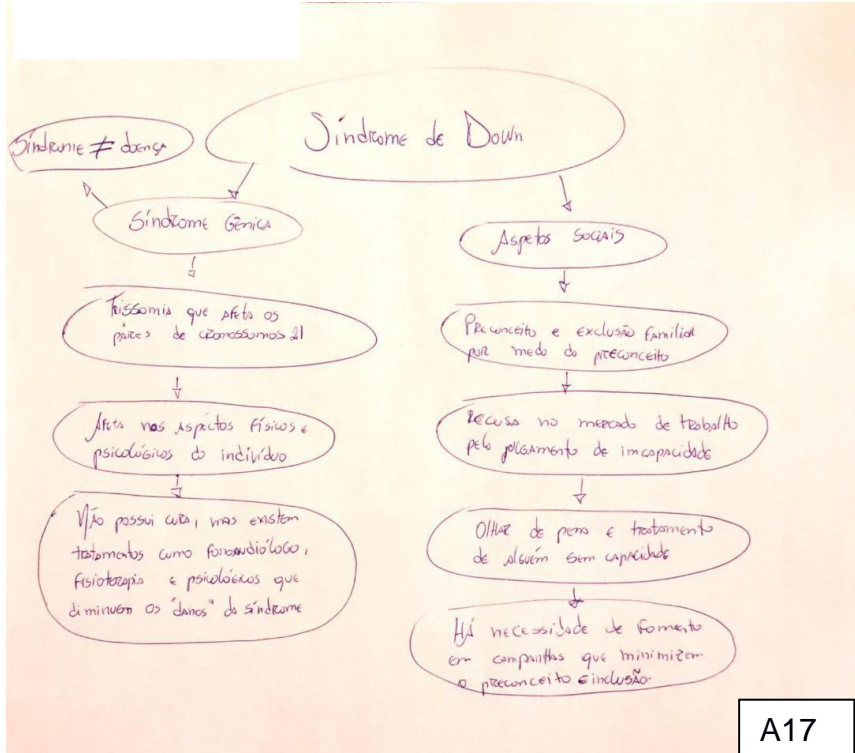 Síndrome de Down
Síndrome ≠ doença
Síndrome Gênica
Trissomia que afeta os
pares de cromossomos 21
Afeta nos aspectos físicos e
psicológicos do indivíduo
Não possui cura, mas existem
tratamentos como fonoaudiólogo,
fisioterapia e psicológicos que
diminuem os "danos" da síndrome
Aspetos sociais
Preconceito e exclusão familiar
por medo do preconceito
Recusa no mercado de trabalho
pelo julgamento de imcapacidade
Olhar de pena e tratamento
de alguém sem capacidade
Há necessidade de fomento
em campanhas que minimizem
o preconceito e inclusão.
A17